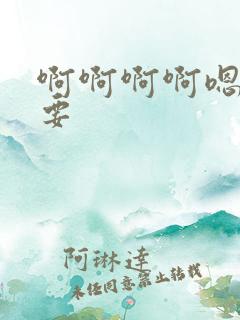 啊啊啊啊嗯
要
阿琳達
未经同意禁止转载